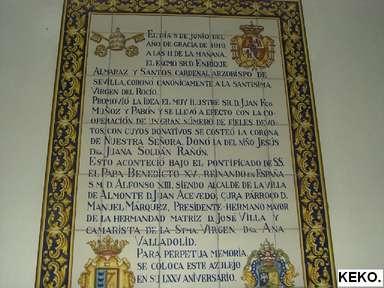 EL DIA 8 DE JUNIO DEL
AÑO DE GRACIA DE 1919
A LAS 11 DE LA MAÑANA,
EL EXCMO SR. D ENRIQUE
ALMARAZ Y SANTOS CARDENAL ARZOBISPO DE
SEVILLA, CORONO CANONICAMENTE A LA SANTISIMA
VIRGEN DEL ROCIO.
PROMOVIÓ LA IDEA EL MUY ILUSTRE SR. D. JUAN Fco
MUÑOZ Y PABÓN Y SE LLEVÓ A EFECTO CON LA CO-
OPERACIÓN DE UN GRAN NÚMERO DE FIELES DEVO-
TOS CON CUYOS DONATIVOS SE COSTEÓ LA CORONA
DE NUESTRA SEÑORA. DONÓ LA DEL NIÑO JESÚS
Dña JUANA SOLDÁN
ESTO ACONTECIÓ BAJO EL PONTIFICADO DE S.S.
EL PAPA BENEDICTO XV, REINANDO EN ESPAÑA
S.M. D. ALFONSO XIII, SIENDO ALCALDE DE LA VILLA
DE ALMONTE D. JUAN ACEVEDO, CURA PÁRROCO D.
MANUEL MÁRQUEZ, PRESIDENTE HERMANO MAYOR
DE LA HERMANDAD MATRIZ D. JOSE VILLA Y
CAMARISTA DE LA Stma VIRGEN Dña ANA
VALLADOLÍD.
PARA PERPETUA MEMORIA
SE COLOCA ESTE AZULEJO
EN SU LXXV ANIVERSARIO.
KEKO.